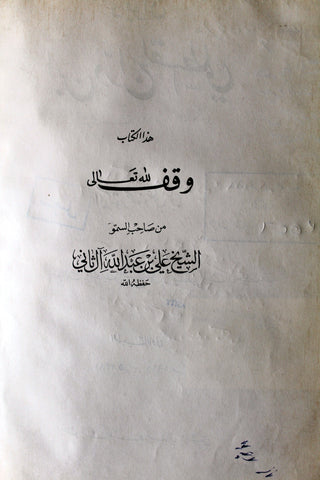 هذا الكتاب
وقف لله تعالى
من صاحب السمو
الشيخ علي بن عبد الله آل ثاني
حفظه الله